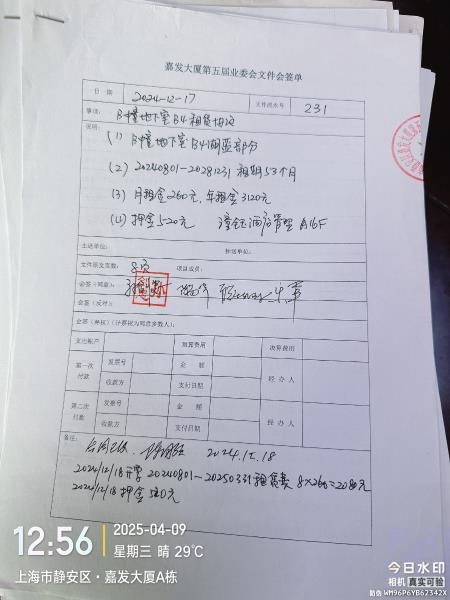 嘉发大厦第五届业委会文件会签单
日 期 2024-12-17 文件流水号 231
事项: B幢地下室B4租赁协议
说明: (1) B幢地下室B4 部分
(2) 20240801-20281231 租期53个月
(3) 月租金260元, 年租金3120元
(4) 押金520元 酒店管理 A16F
主送单位: 抄送单位:
文件原文页数: 项目成员:
会签(同意):
会签(反对):
会签(弃权)(计票视为同意多数人):
支出账户 预算费用 决算费用
第一次付款 发票号 金 额 经 办 人
收款方 支付日期
第二次付款 发票号 金 额 经 办 人
收款方 支付日期
备注:
2024.12.18
2024/12/18开票 20240801-20250331租赁费 8×260=2080元
2024/12/18 押金520元
12:56
2025-04-09
星期三 晴 29℃
上海市静安区·嘉发大厦A栋
今日水印
相机 真实可验
防伪 WM96P6YB62342X